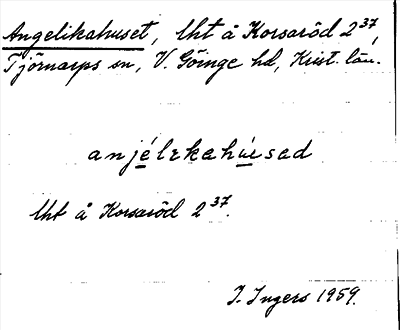 Angelikahuset, lht å Korsaröd 2³⁷,
Tjörnarps sn, V. Göinge hd, Krist. län.
anjélekahúsad
lht å Korsaröd 2³⁷.
I. Ingers 1959.